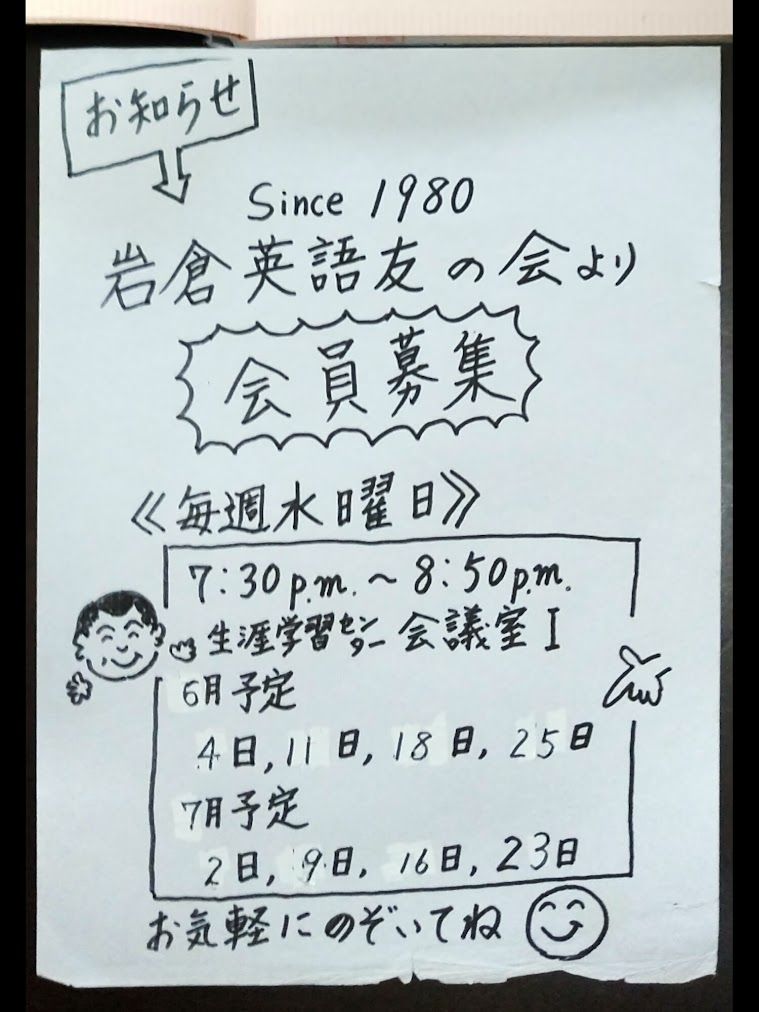 お知らせ
Since 1980
岩倉英語友の会より
会員募集
≪毎週水曜日≫
7:30p.m.～8:50p.m.
生涯学習センター 会議室Ⅰ
6月予定
4日,11日,18日,25日
7月予定
2日,9日,16日,23日
お気軽にのぞいてね